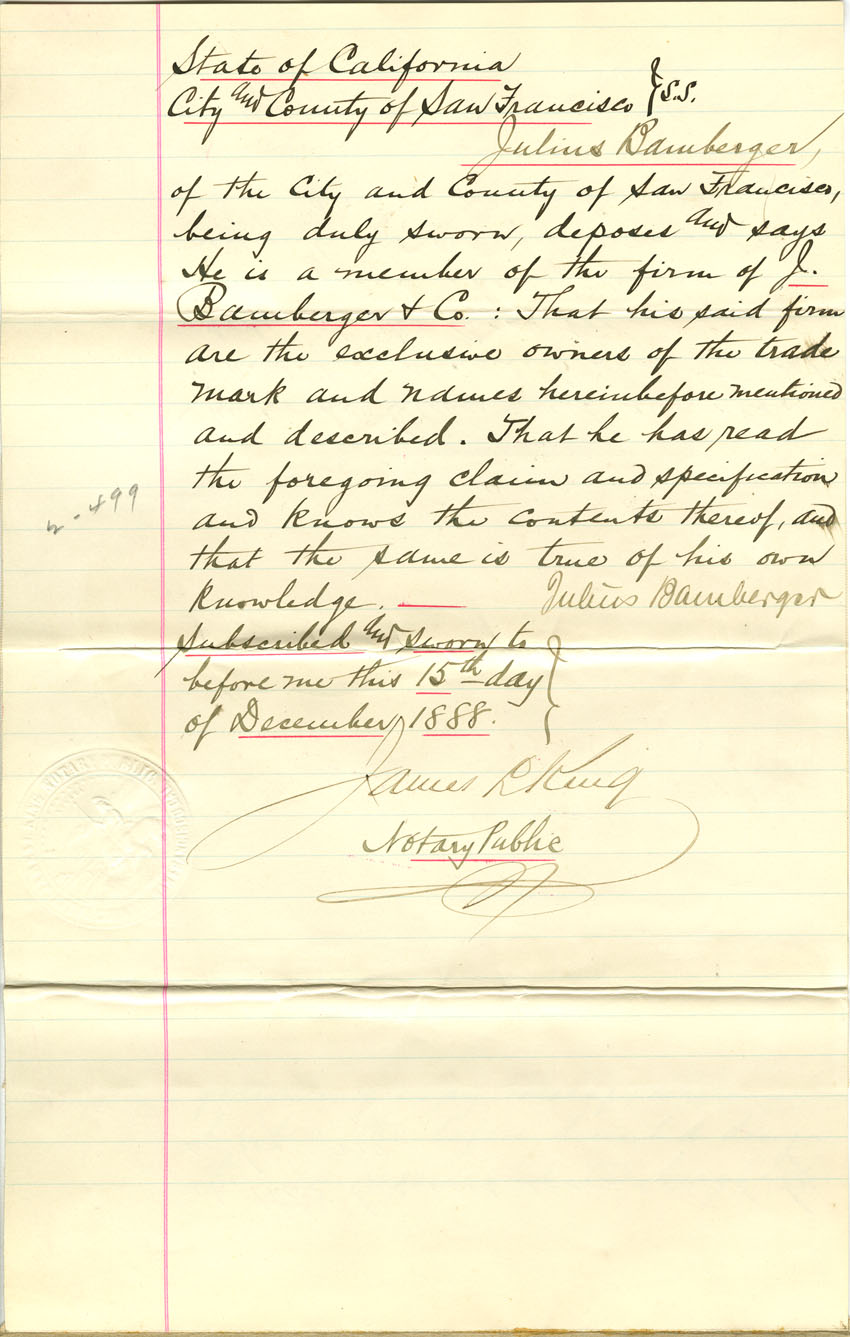 State of California
City and County of San Francisco } S.S.
Julius Bamberger,
of the City and County of San Francisco,
being duly sworn, deposes and says
He is a member of the firm of J.
Bamberger & Co. : That his said firm
are the exclusive owners of the trade
mark and names hereinbefore mentioned
and described. That he has read
the foregoing claim and specification
and knows the contents thereof, and
that the same is true of his own
knowledge.
Julius Bamberger
Subscribed and sworn to
before me this 15th day
of December, 1888.
James L King
Notary Public